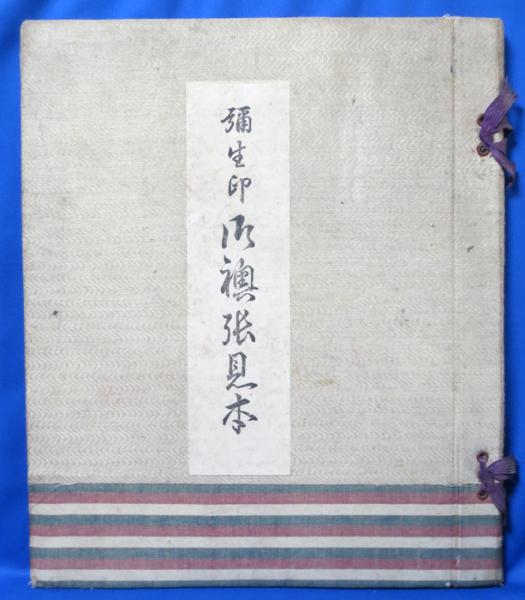 彌生印御襖張見本